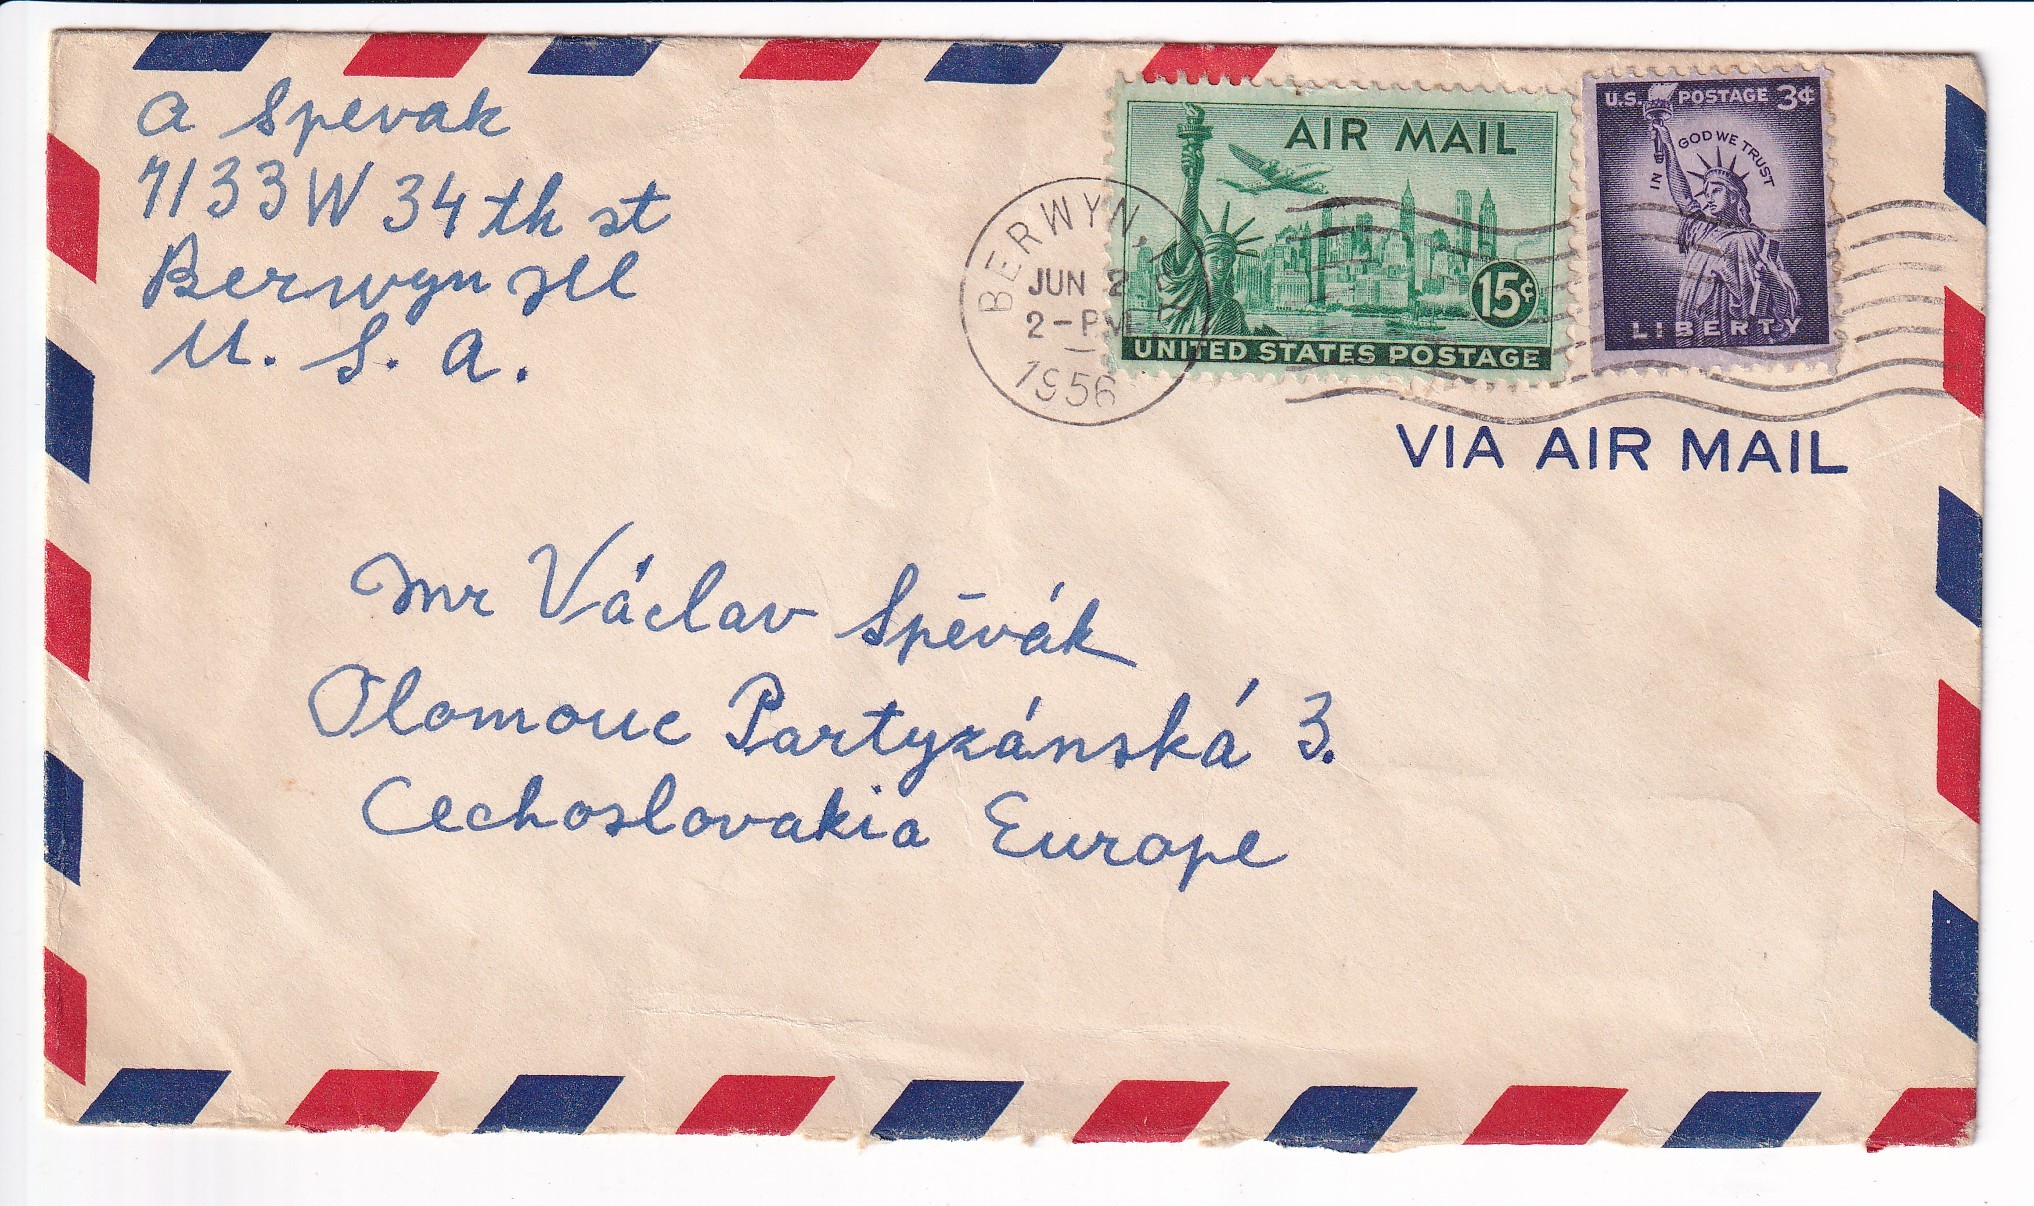 a Spevak
7133 W 34 th st
Berwyn Ill
U. S. A.
BERWYN, ILL
JUN 2
2-PM
1956
AIR MAIL
15¢
UNITED STATES POSTAGE
U.S. POSTAGE 3¢
IN GOD WE TRUST
LIBERTY
VIA AIR MAIL
Mr Václav Spěvák
Olomouc Partyzánská 3.
Cechoslovakia Europe